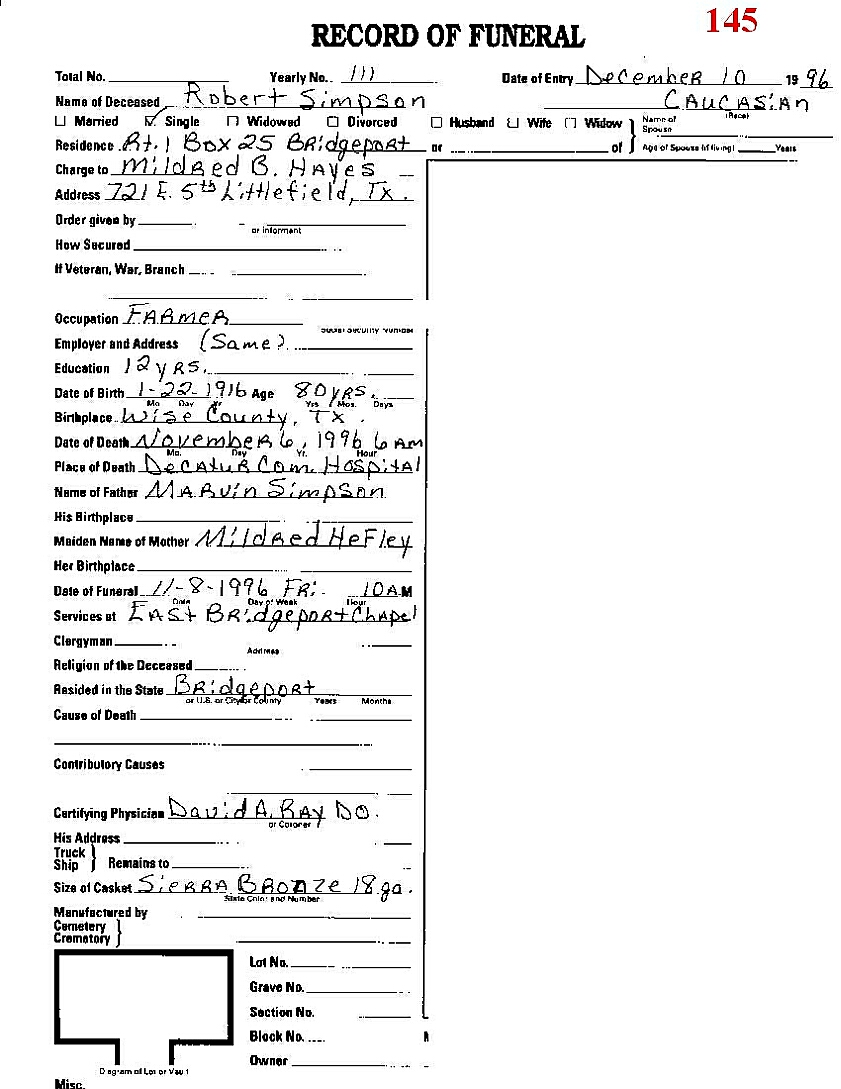 145
RECORD OF FUNERAL
Total No. Yearly No. 111 Date of Entry December 10 1996
Name of Deceased Robert Simpson CAUCASIAN
(Race)
Married Single Widowed Divorced Husband Wife Widow } Name of Spouse
Residence Rt. 1 Box 25 Bridgeport or of } Age of Spouse (if living) Years
Charge to Mildred B. Hayes
Address 721 E. 5th Littlefield, Tx.
Order given by
or informant
How Secured
If Veteran, War, Branch
Occupation FARMER
Social Security Number
Employer and Address (Same)
Education 12 yRS.
Date of Birth 1-22-1916 Age 80 yRS.
Mo. Day Yr. Yrs. Mos. Days
Birthplace Wise County, TX.
Date of Death November 6, 1996 6 AM
Mo. Day Yr. Hour
Place of Death Decatur Com. Hospital
Name of Father MARVin Simpson
His Birthplace
Maiden Name of Mother Mildred HeFley
Her Birthplace
Date of Funeral 11-8-1996 FRi. 10 AM
Date Day of Week Hour
Services at EASt BRidgepoRt Chapel
Clergyman
Address
Religion of the Deceased
Resided in the State BRidgepoRt
or U.S. or City or County Years Months
Cause of Death
Contributory Causes
Certifying Physician David A. Ray DO.
or Coroner
His Address
Truck
Ship } Remains to
Size of Casket SieRRA BRONZE 18 ga.
State Color and Number
Manufactured by
Cemetery
Crematory }
Lot No.
Grave No.
Section No.
Block No.
Owner
Diagram of Lot or Vault
Misc.